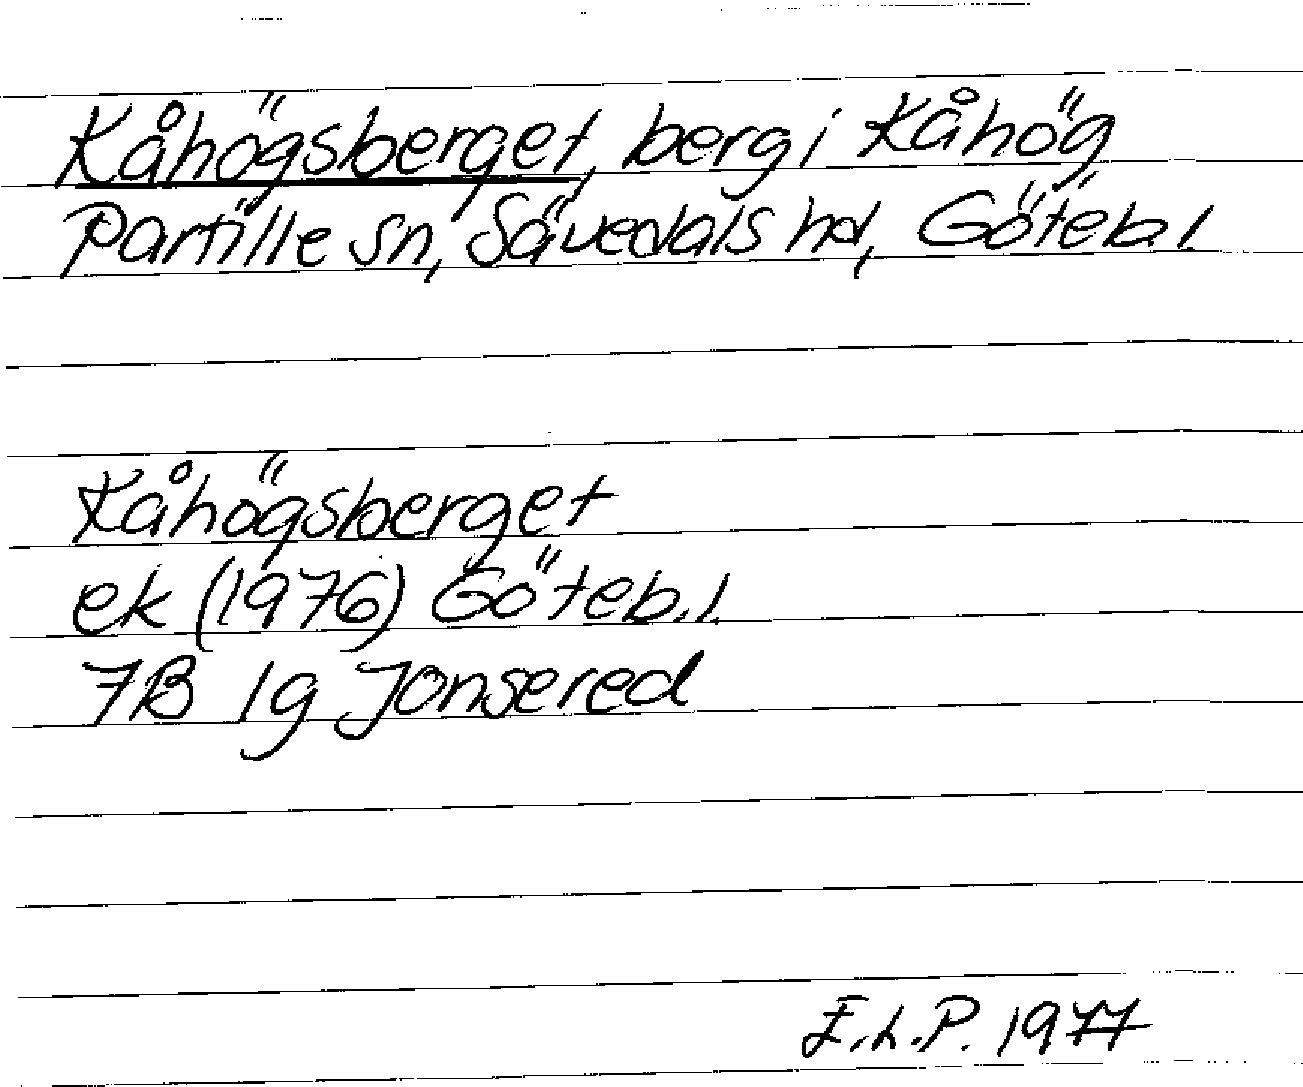 Kåhögsberget, berg i Kåhög
Partille sn, Sävedals hd, Göteb.l.
Kåhögsberget
ek (1976) Göteb.l.
7B 1g Jonsered
E.L.P. 1977